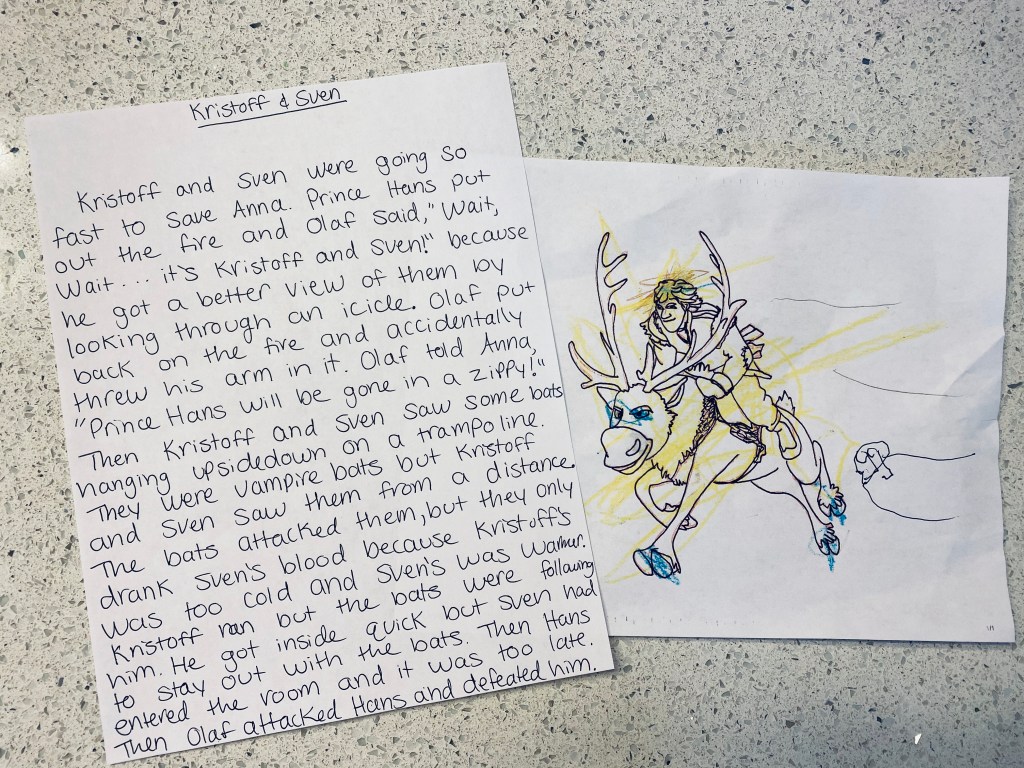 Kristoff & Sven
Kristoff and Sven were going so
fast to save Anna. Prince Hans put
out the fire and Olaf said, "Wait,
Wait... it's Kristoff and Sven!" because
he got a better view of them by
looking through an icicle. Olaf put
back on the fire and accidentally
threw his arm in it. Olaf told Anna,
"Prince Hans will be gone in a zippy!"
Then Kristoff and Sven saw some bats
hanging upsidedown on a trampoline.
They were vampire bats but Kristoff
and Sven saw them from a distance.
The bats attacked them, but they only
drank Sven's blood because Kristoff's
was too cold and Sven's was warmer.
Kristoff ran but the bats were following
him. He got inside quick but Sven had
to stay out with the bats. Then Hans
entered the room and it was too late.
Then Olaf attacked Hans and defeated him.